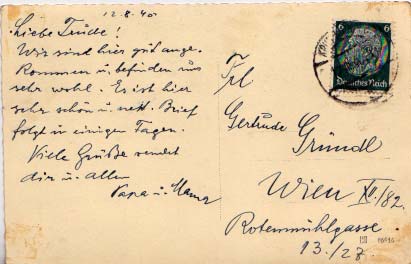 12.8.40
Liebe Trude!
Wir sind hier gut ange-
kommen u. befinden uns
sehr wohl. Es ist hier
sehr schön u. nett. Brief
folgt in einigen Tagen.
Viele Grüße sendet
dir u. allen
Papa u. Mama
6 6
Deutsches Reich
Frl
Gertrude
Gründl
Wien XII/82.
Rotenmühlgasse
13./28